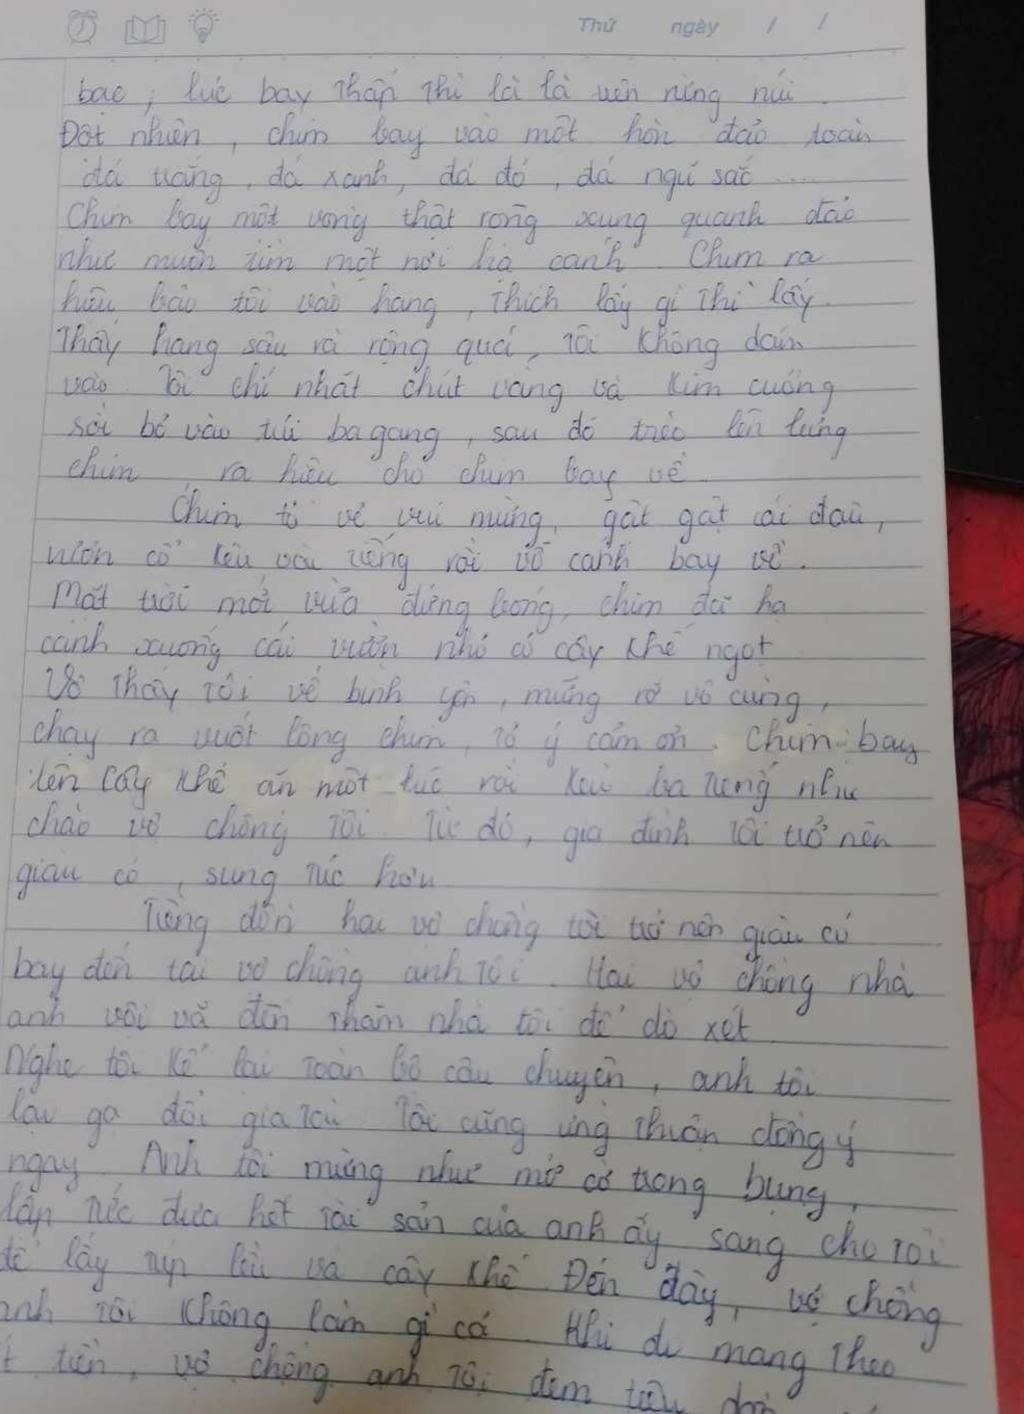 Thứ ngày / /
bạc, lúc bay thấp thì là là trên rừng núi.
Đột nhiên, chim bay vào một hòn đảo toàn
đá trắng, đá xanh, đá đỏ, đá ngũ sắc ....
Chim bay một vòng thật rộng xung quanh đảo
như muốn tìm một nơi hạ cánh. Chim ra
hiệu bảo tôi vào hang, thích lấy gì thì lấy.
Thấy hang sâu và rộng quá, tôi không dám
vào. Tôi chỉ nhặt chút vàng và kim cương
rồi bỏ vào túi ba gang, sau đó trèo lên lưng
chim, ra hiệu cho chim bay về.
Chim tỏ vẻ vui mừng, gật gật cái đầu,
vươn cổ kêu vài tiếng rồi vỗ cánh bay về.
Mặt trời mới vừa đứng bóng, chim đã hạ
cánh xuống cái vườn nhỏ có cây khế ngọt
Vợ thấy tôi về bình yên, mừng rỡ vô cùng,
chạy ra vuốt lông chim, tỏ ý cảm ơn. Chim bay
lên cây khế ăn một lúc rồi kêu ba tiếng như
chào vợ chồng tôi. Từ đó, gia đình tôi trở nên
giàu có, sung túc hơn.
Tiếng đồn hai vợ chồng tôi trở nên giàu có
bay đến tai vợ chồng anh tôi. Hai vợ chồng nhà
anh vội vã đến thăm nhà tôi để dò xét
Nghe tôi kể lại toàn bộ câu chuyện, anh tôi
lại gạ đổi gia tài. Tôi cũng ưng thuận đồng ý
ngay. Anh tôi mừng như mở cờ trong bụng,
lập tức đưa hết tài sản của anh ấy sang cho tôi
để lấy túp lều và cây khế. Đến đây, vợ chồng
anh tôi không làm gì cả. Khi đi mang theo
tiền, vợ chồng anh tôi đem tiêu